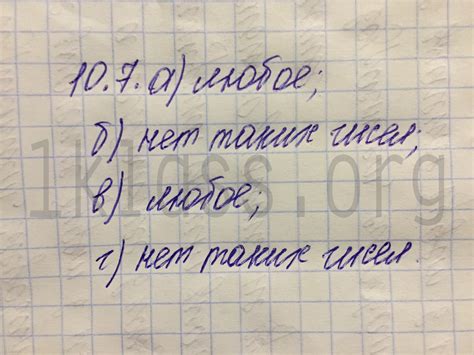 10.7. а) любое;
б) нет таких чисел;
в) любое;
г) нет таких чисел.
1klass.org